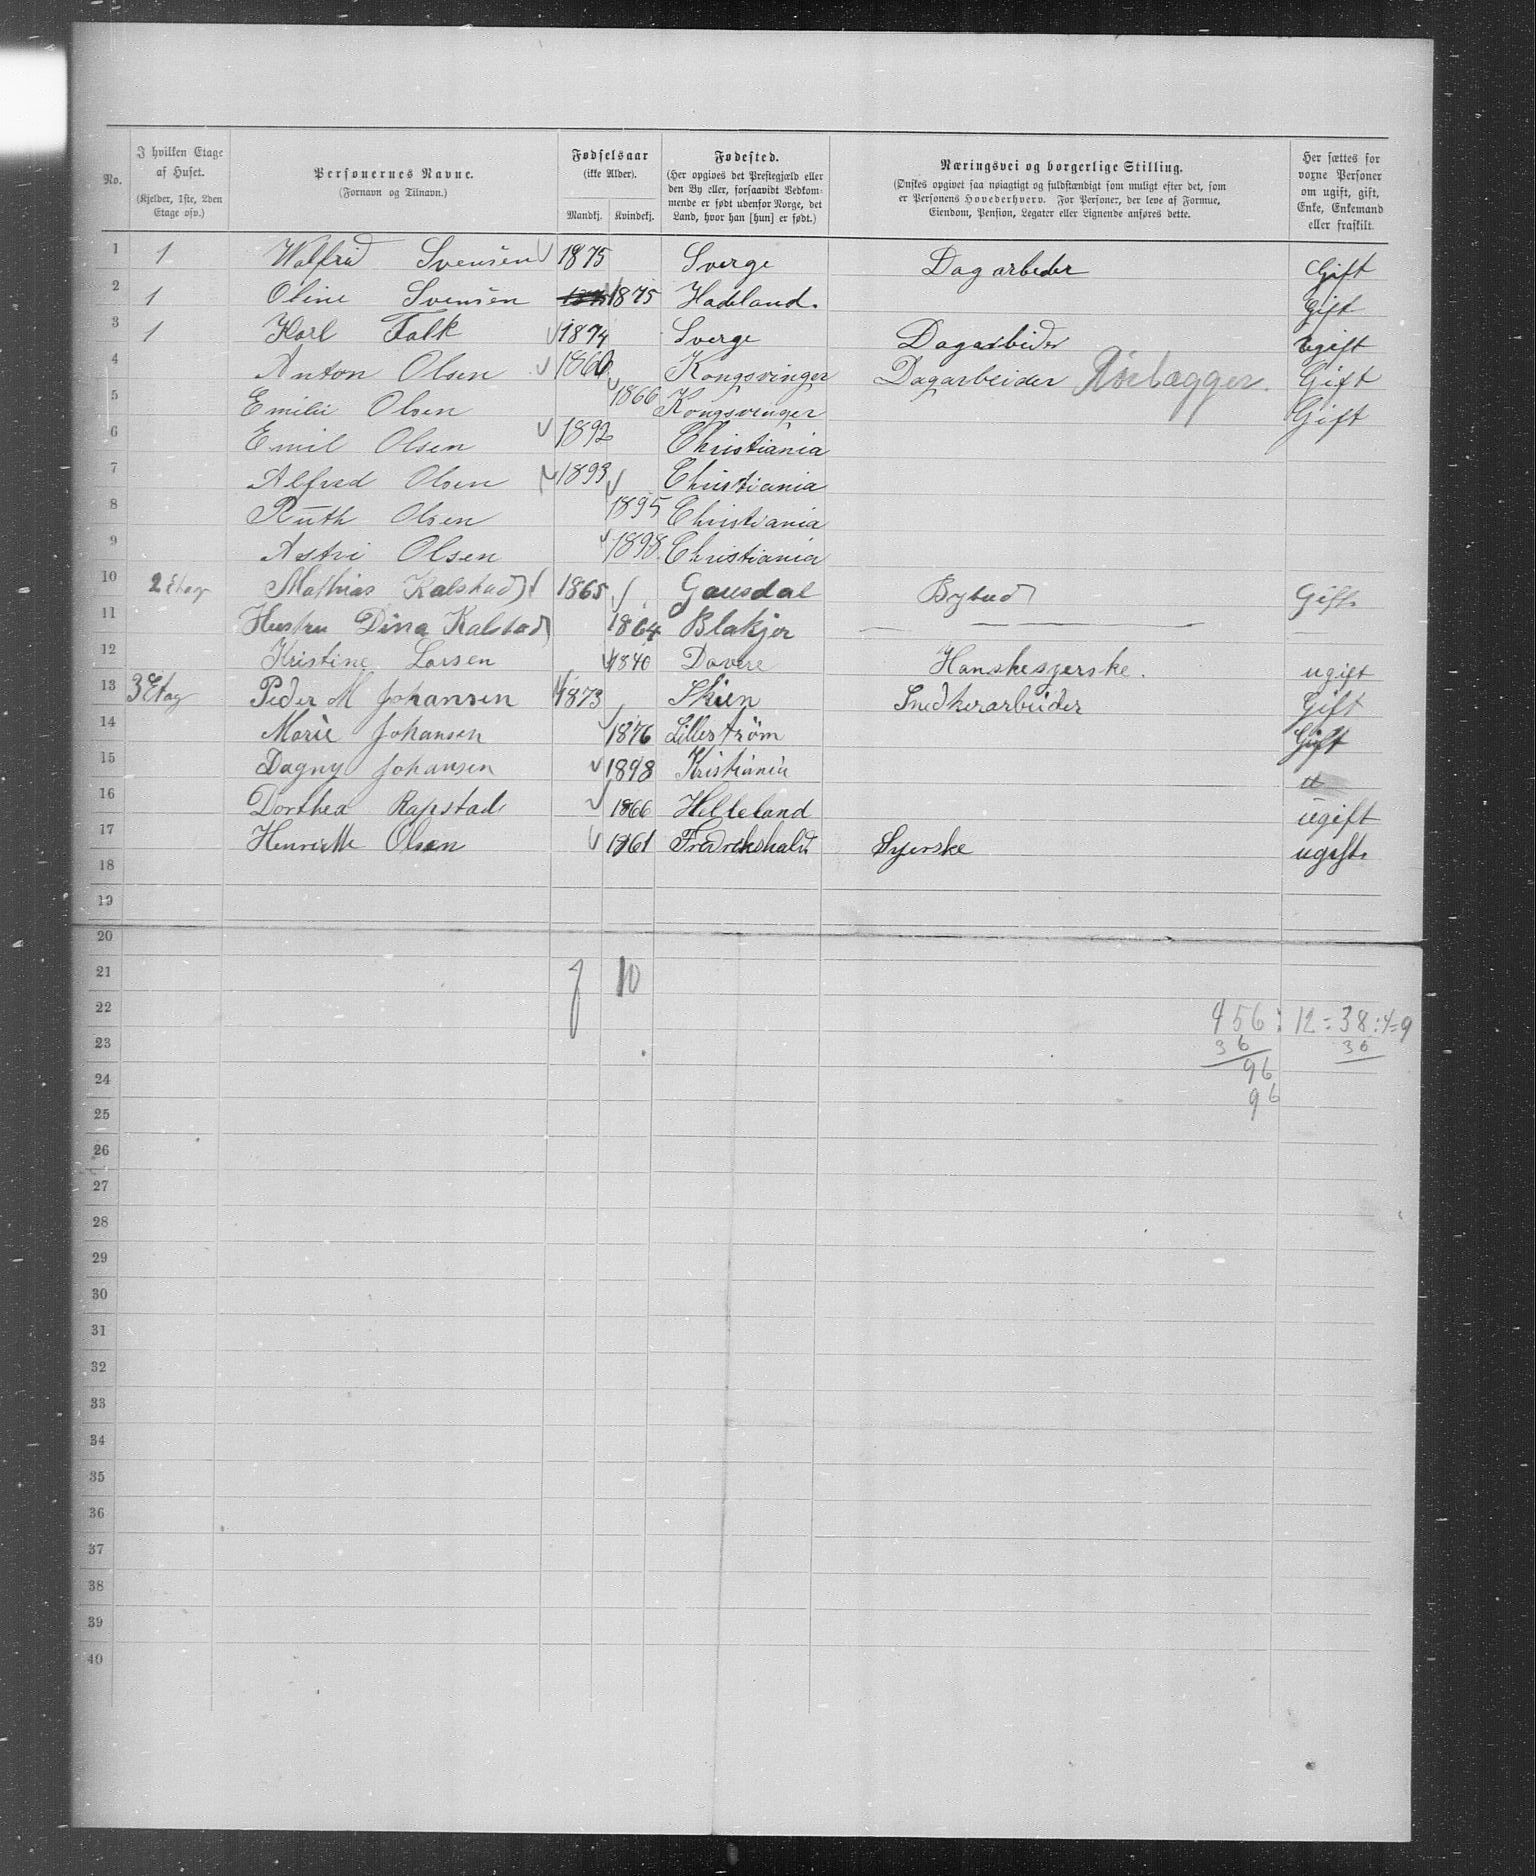 No.
I hvilken Etage af Huset.
(Kjelder, 1ste, 2den Etage osv.)
Personernes Navne.
(Fornavn og Tilnavn.)
Fødselsaar
(ikke Alder).
Mandkj. Kvindekj.
Fødested.
(Her opgives det Prestegjæld eller den By eller, forsaavidt Vedkommende er født udenfor Norge, det Land, hvor han [hun] er født.)
Næringsvei og borgerlige Stilling.
(Ønskes opgivet saa nøiagtigt og fuldstændigt som muligt efter det, som er Personens Hovederhverv. For Personer, der leve af Formue, Eiendom, Pension, Legater eller Lignende anføres dette.
Her sættes for voxne Personer om ugift, gift, Enke, Enkemand eller fraskilt.
1 1 Walfrid Svensen 1875 Sverge Dagarbeder Gift
2 1 Oline Svensen 1875 Hadeland. Gift
3 1 Karl Falk 1874 Sverge Dagarbeider ugift
4 Anton Olsen 1866 Kongsvinger Dagarbeider Gift
5 Emilie Olsen 1866 Kongsvinger Gift
6 Emil Olsen 1892 Christiania
7 Alfred Olsen 1893 Christiania
8 Ruth Olsen 1895 Christiania
9 Astri Olsen 1898 Christiania
10 2 Etage Mathias Kalstad 1865 Gausdal Bybud Gift
11 Hustru Dina Kalstad 1864 Blakjer
12 Kristine Larsen 1840 Dovere Hanskesyerske. ugift
13 3 Etag Peder M Johansen 1873 Skien Snedkerarbeider Gift
14 Marie Johansen 1876 Lillestrøm Gift
15 Dagny Johansen 1898 Kristiania u
16 Dorthea Rapstad 1866 Helleland ugift
17 Henriette Olsen 1861 Fredrikshald Syerske ugift
18
19
20
21 7 10
22 456 : 12 = 38 : 4 = 9
23 36 36
24 96
25 96
26
27
28
29
30
31
32
33
34
35
36
37
38
39
40